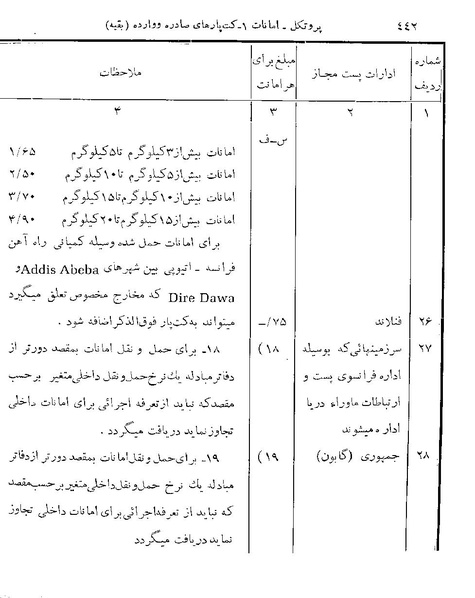 ۴۴۲ پروتکل ـ امانات ۱ـ کت‌پارهای صادره ووارده (بقیه)
شماره ردیف
ادارات پست مجاز
مبلغ برای هر امانت
ملاحظات
۱ ۲ ۳ ۴
س‌ـ‌ف
امانات بیش‌از۳کیلوگرم تا۵کیلوگرم ۱/۶۵
امانات بیش‌از۵کیلوگرم تا۱۰کیلوگرم ۲/۵۰
امانات بیش‌از۱۰کیلوگرم‌تا۱۵کیلوگرم ۳/۷۰
امانات بیش‌از۱۵کیلوگرم‌تا۲۰کیلوگرم ۴/۹۰
برای امانات حمل شده وسیله کمپانی راه آهن
فرانسه ـ اتیوپی بین شهرهای Addis Abebaو
Dire Dawa که مخارج مخصوص تعلق میگیرد
میتواند به‌کت‌پار فوق‌الذکر اضافه شود .
۲۶ فنلاند ۷۵/ـ
۲۷ سرزمینهائی‌که بوسیله
اداره فرانسوی پست و
ارتباطات ماوراء دریا
اداره میشوند
۱۸)
۱۸ـ برای حمل و نقل امانات بمقصد دورتر از
دفاتر مبادله یك‌نرخ حمل‌ونقل داخلی‌متغیر برحسب
مقصدکه نباید ازتعرفه اجرائی برای امانات داخلی
تجاوز نماید دریافت میگردد .
۲۸ جمهوری (گابون) ۱۹)
۱۹ـ برای‌حمل ونقل‌امانات بمقصد دورتر ازدفاتر
مبادله یك نرخ حمل‌ونقل‌داخلی‌متغیر برحسب‌مقصد
که نباید از تعرفه‌اجرائی‌برای امانات داخلی تجاوز
نماید دریافت میگردد